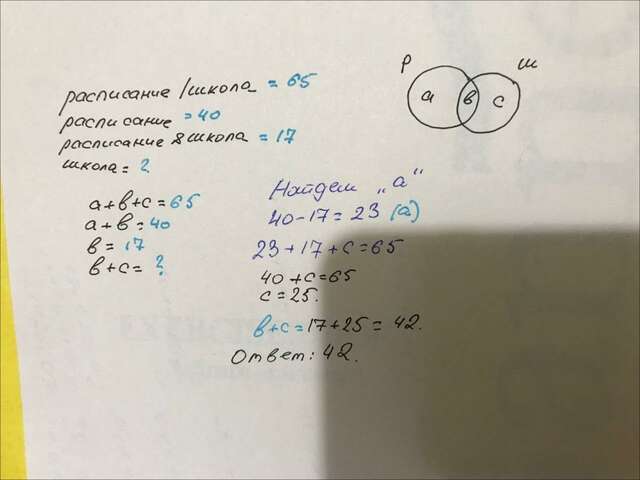 расписание / школа = 65
расписание = 40
расписание & школа = 17
школа = ?
Р Ш
а в с
а + в + с = 65
а + в = 40
в = 17
в + с = ?
Найдем „а“
40 - 17 = 23 (а)
23 + 17 + с = 65
40 + с = 65
с = 25.
в + с = 17 + 25 = 42.
Ответ: 42.